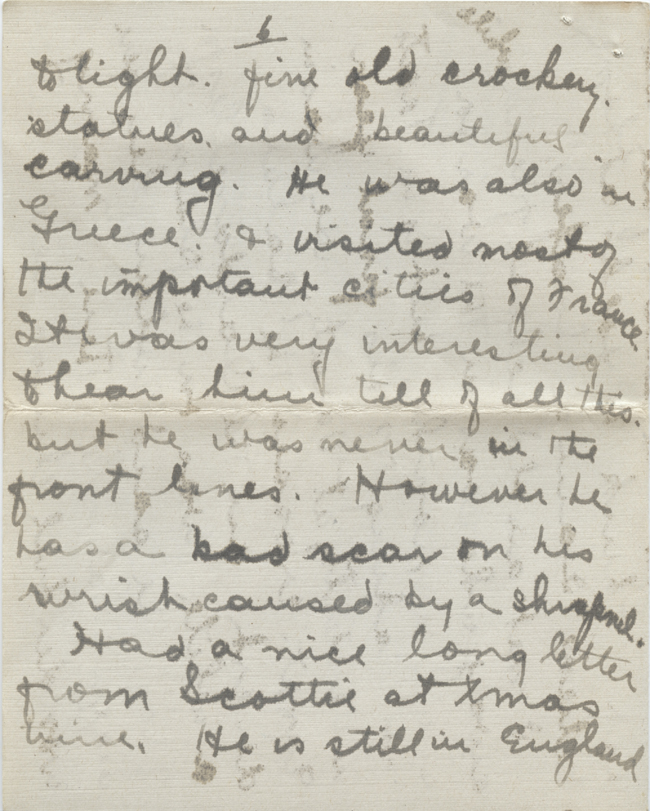 6
to light. fine old crockery.
statues. and beautiful
carving. He was also in
Greece. & visited most of
the important cities of France.
It was very interesting
to hear him tell of all this.
but he was never in the
front lines. However he
has a bad scar on his
wrist caused by a shrapnel.
Had a nice long letter
from Scottie at Xmas
time. He is still in England